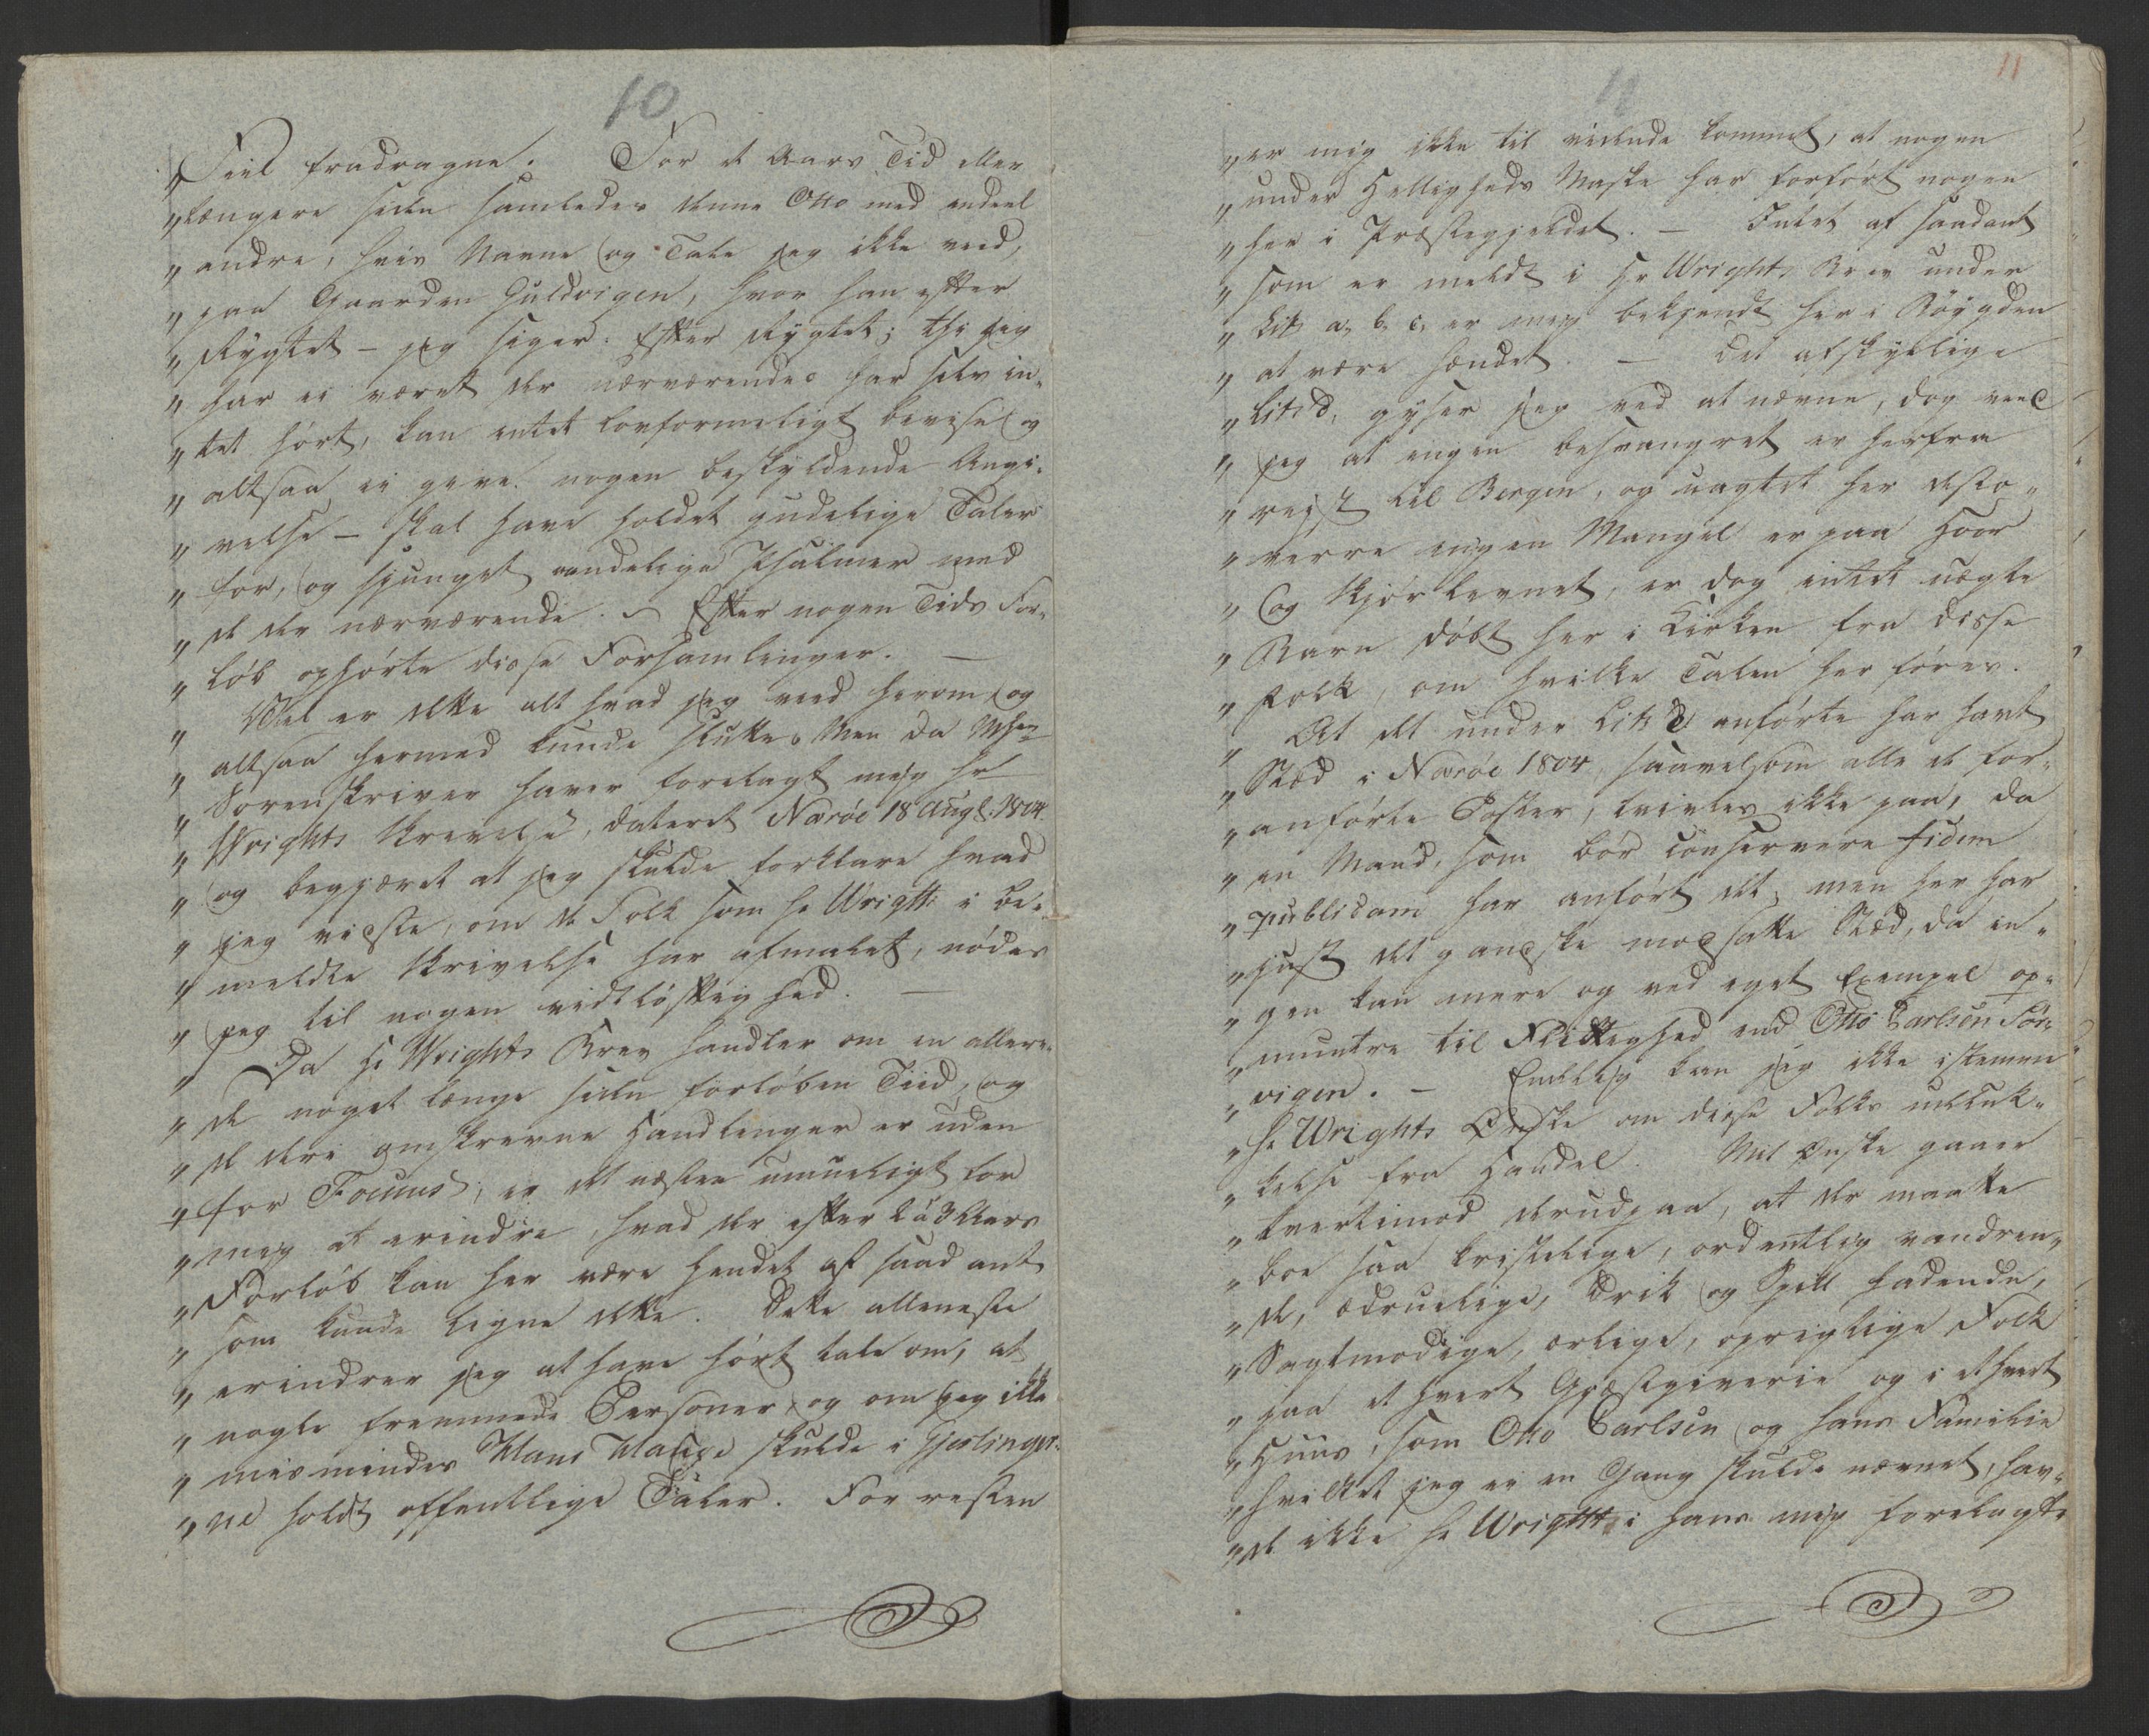 10
„Feil fradragne. For et Aars Tid eller
„længere siden samledes denne Otto med endeel
„andre, hvis Navne og Tale jeg ikke veed,
„paa Gaarden Guldvigen, hvor han efter
„Rygtet – jeg siger: Efter Rygtet; thi jeg
„har ei været der nærværende, har selv in-
„tet hørt, kan intet lovformeligt bevise og
„altsaa ei give nogen beskyldende Angi-
„velse – skal have holdet gudelige Taler
„for, og sjunget aandelige Psalmer med
„de der nærværende. – Efter nogen Tids For-
„løb ophørte disse Forsamlinger. –
„Vel er dette alt hvad jeg veed herom, og
„altsaa hermed kunde slutte, Men da Mhr
„Sorenskriver haver forelagt mig Hr
„Wrights Skrivelse, dateret Nærøe 18 Augt. 1804
„og begjæret at jeg skulde forklare hvad
„jeg vidste, om de Folk som Hr Wright i be-
„meldte Skrivelse har afmalet, nødes
„jeg til nogen vidtløftighed. –
„Da Hr Wrights Brev handler om en allere-
„de noget længe siden forløben Tiid, og
„de deri omskrevne Handlinger er uden
„for Focuus, er det næsten umueligt for
„mig at erindre, hvad der efter 2 à 3 Aars
„Forløb kan her være hendet af saadant
„som kunde ligne dette. Dette alleneste
„erindrer jeg at have hørt tale om, at
„nogle fremmede Personer, og om jeg ikke
„misminder Hans Hauge skulde i Gjeslinger-
„ne holdt offentlige Taler. For resten
11
11
„er mig ikke til vidende kommet, at nogen
„under Helligheds Maske har forført nogen
„her i Præstegjeldet. – Intet af saadant
„som er meldt i Hr Wrights Brev under
„Lit. a, b, c, er mig bekjendt her i Bøygden
„at være hændet. – Det afskyelige
„Lit. d, gyser jeg ved at nævne, dog veed
„jeg at ingen besvangret er herfra
„reist til Bergen, og uagtet her desto-
„værre ingen Mangel er paa Hoor
„og Skjørlevnet, er dog intet uægte
„Barn døbt her i Kirken fra disse
„Folk, om hvilke Talen her føres.
„At det under Lit. d anførte har havt
„Stæd i Nærøe 1804, saavelsom alle de for-
„anførte Poster, tvivles ikke paa, da
„en Mand, som bør conservere fidem
„publicam har anført det, men her har
„just det gandske modsatte Stæd, da in-
„gen kan mere og ved eget Exempel op-
„muntre til Flittighed end Otto Carlsen Sør-
„vigen. – Endelig kan jeg ikke istemme
„Hr Wrights Ønske om disse Folks udeluk-
„kelse fra Handel. Mit Ønske gaaer
„tvertimod derudpaa, at der maatte
„boe saa kristelige, ordentlig vandren-
„de, ædruelige, Drik og Spill hadende,
„Sagtmodige, ærlige, oprigtige Folk
„paa et hvert Gjæstgiverie og i ethvert
„Huus, som Otto Carlsen og hans Familie
„hvilket jeg ei en Gang skulde nævnet, hav-
„de ikke Hr Wright i hans mig forelagte